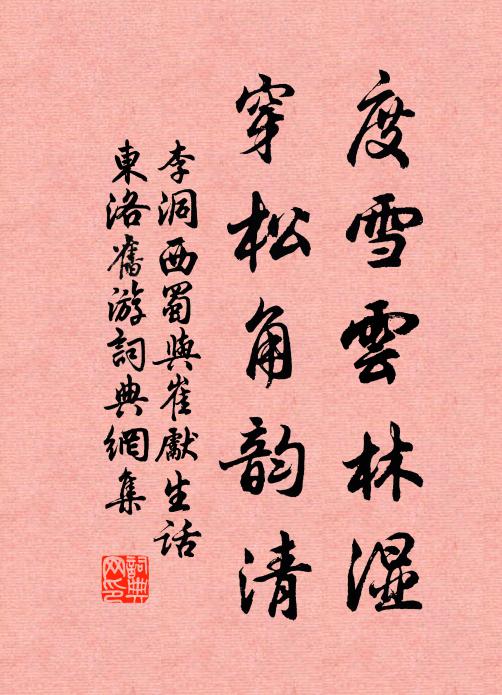 度雪雲林湿
穿松角韵清
李洞西蜀與崔獻生话
東洛舊游詞典網集
詞典网印